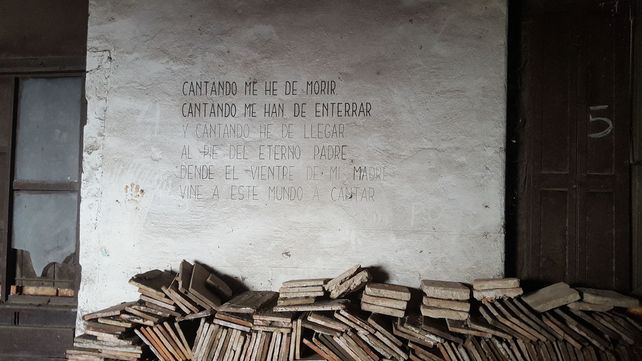 CANTANDO ME HE DE MORIR
CANTANDO ME HAN DE ENTERRAR
Y CANTANDO HE DE LLEGAR
AL PIE DEL ETERNO PADRE
DENDE EL VIENTRE DE MI MADRE
VINE A ESTE MUNDO A CANTAR
5